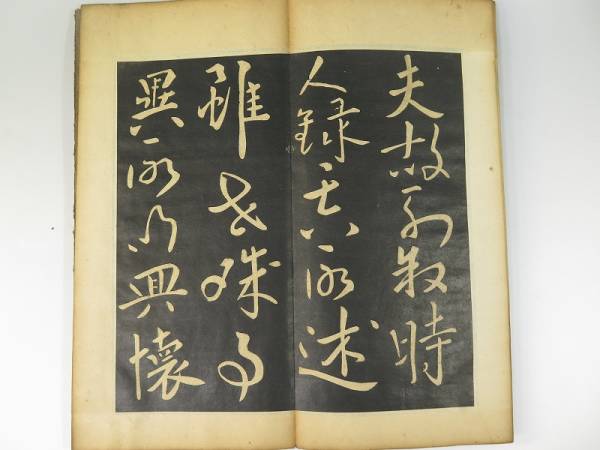 夫故列叙時
人録其所述
雖世殊事
異所以興懐